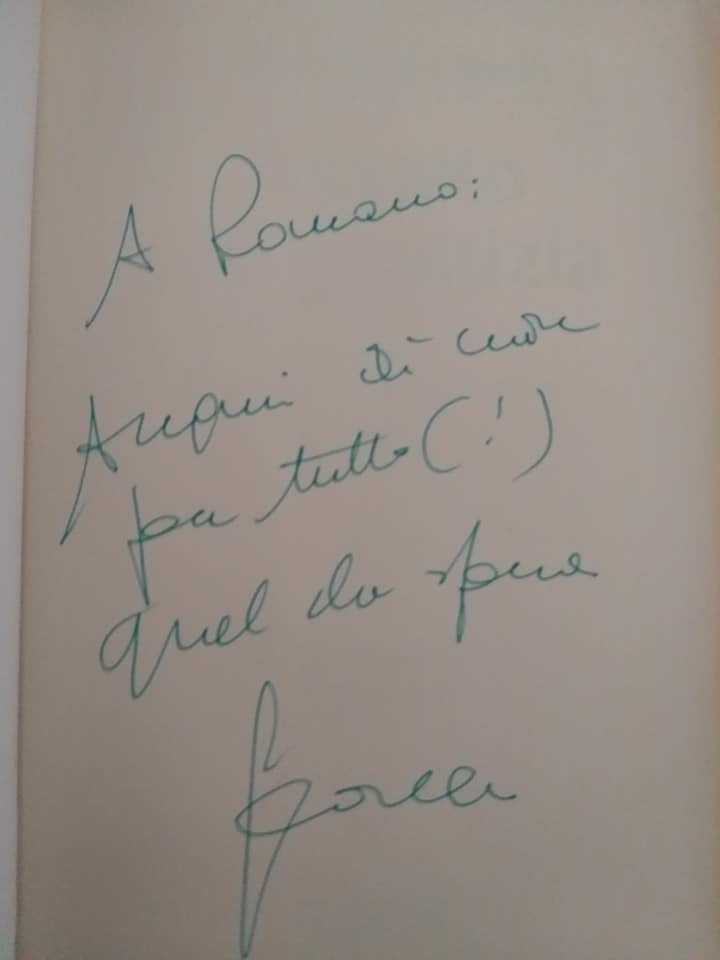 A Romano:
Auguri di cuore
per tutto (!)
quel che spera